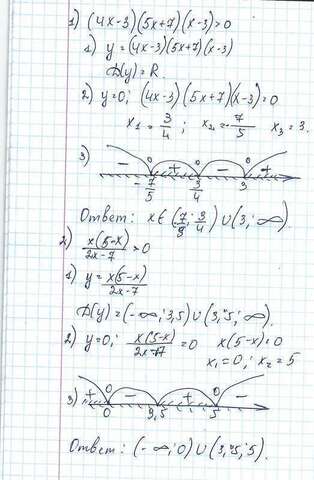 1) (4x-3)(5x+7)(x-3)>0
1) y=(4x-3)(5x+7)(x-3)
D(y)=R.
2) y=0; (4x-3)(5x+7)(x-3)=0
x₁=3/4; x₂=-7/5 x₃=3.
3) - 0 + 0 - 0 +
-7/5 3/4 3
Ответ: x∈(7/5; 3/4)∪(3; ∞).
2) x(5-x)/2x-7 >0
1) y=x(5-x)/2x-7
D(y)=(-∞; 3,5)∪(3,5; ∞).
2) y=0; x(5-x)/2x-7=0 x(5-x)=0
x₁=0; x₂=5
3) + 0 - + 0 -
0 3,5 5
Ответ: (-∞; 0)∪(3,5; 5).